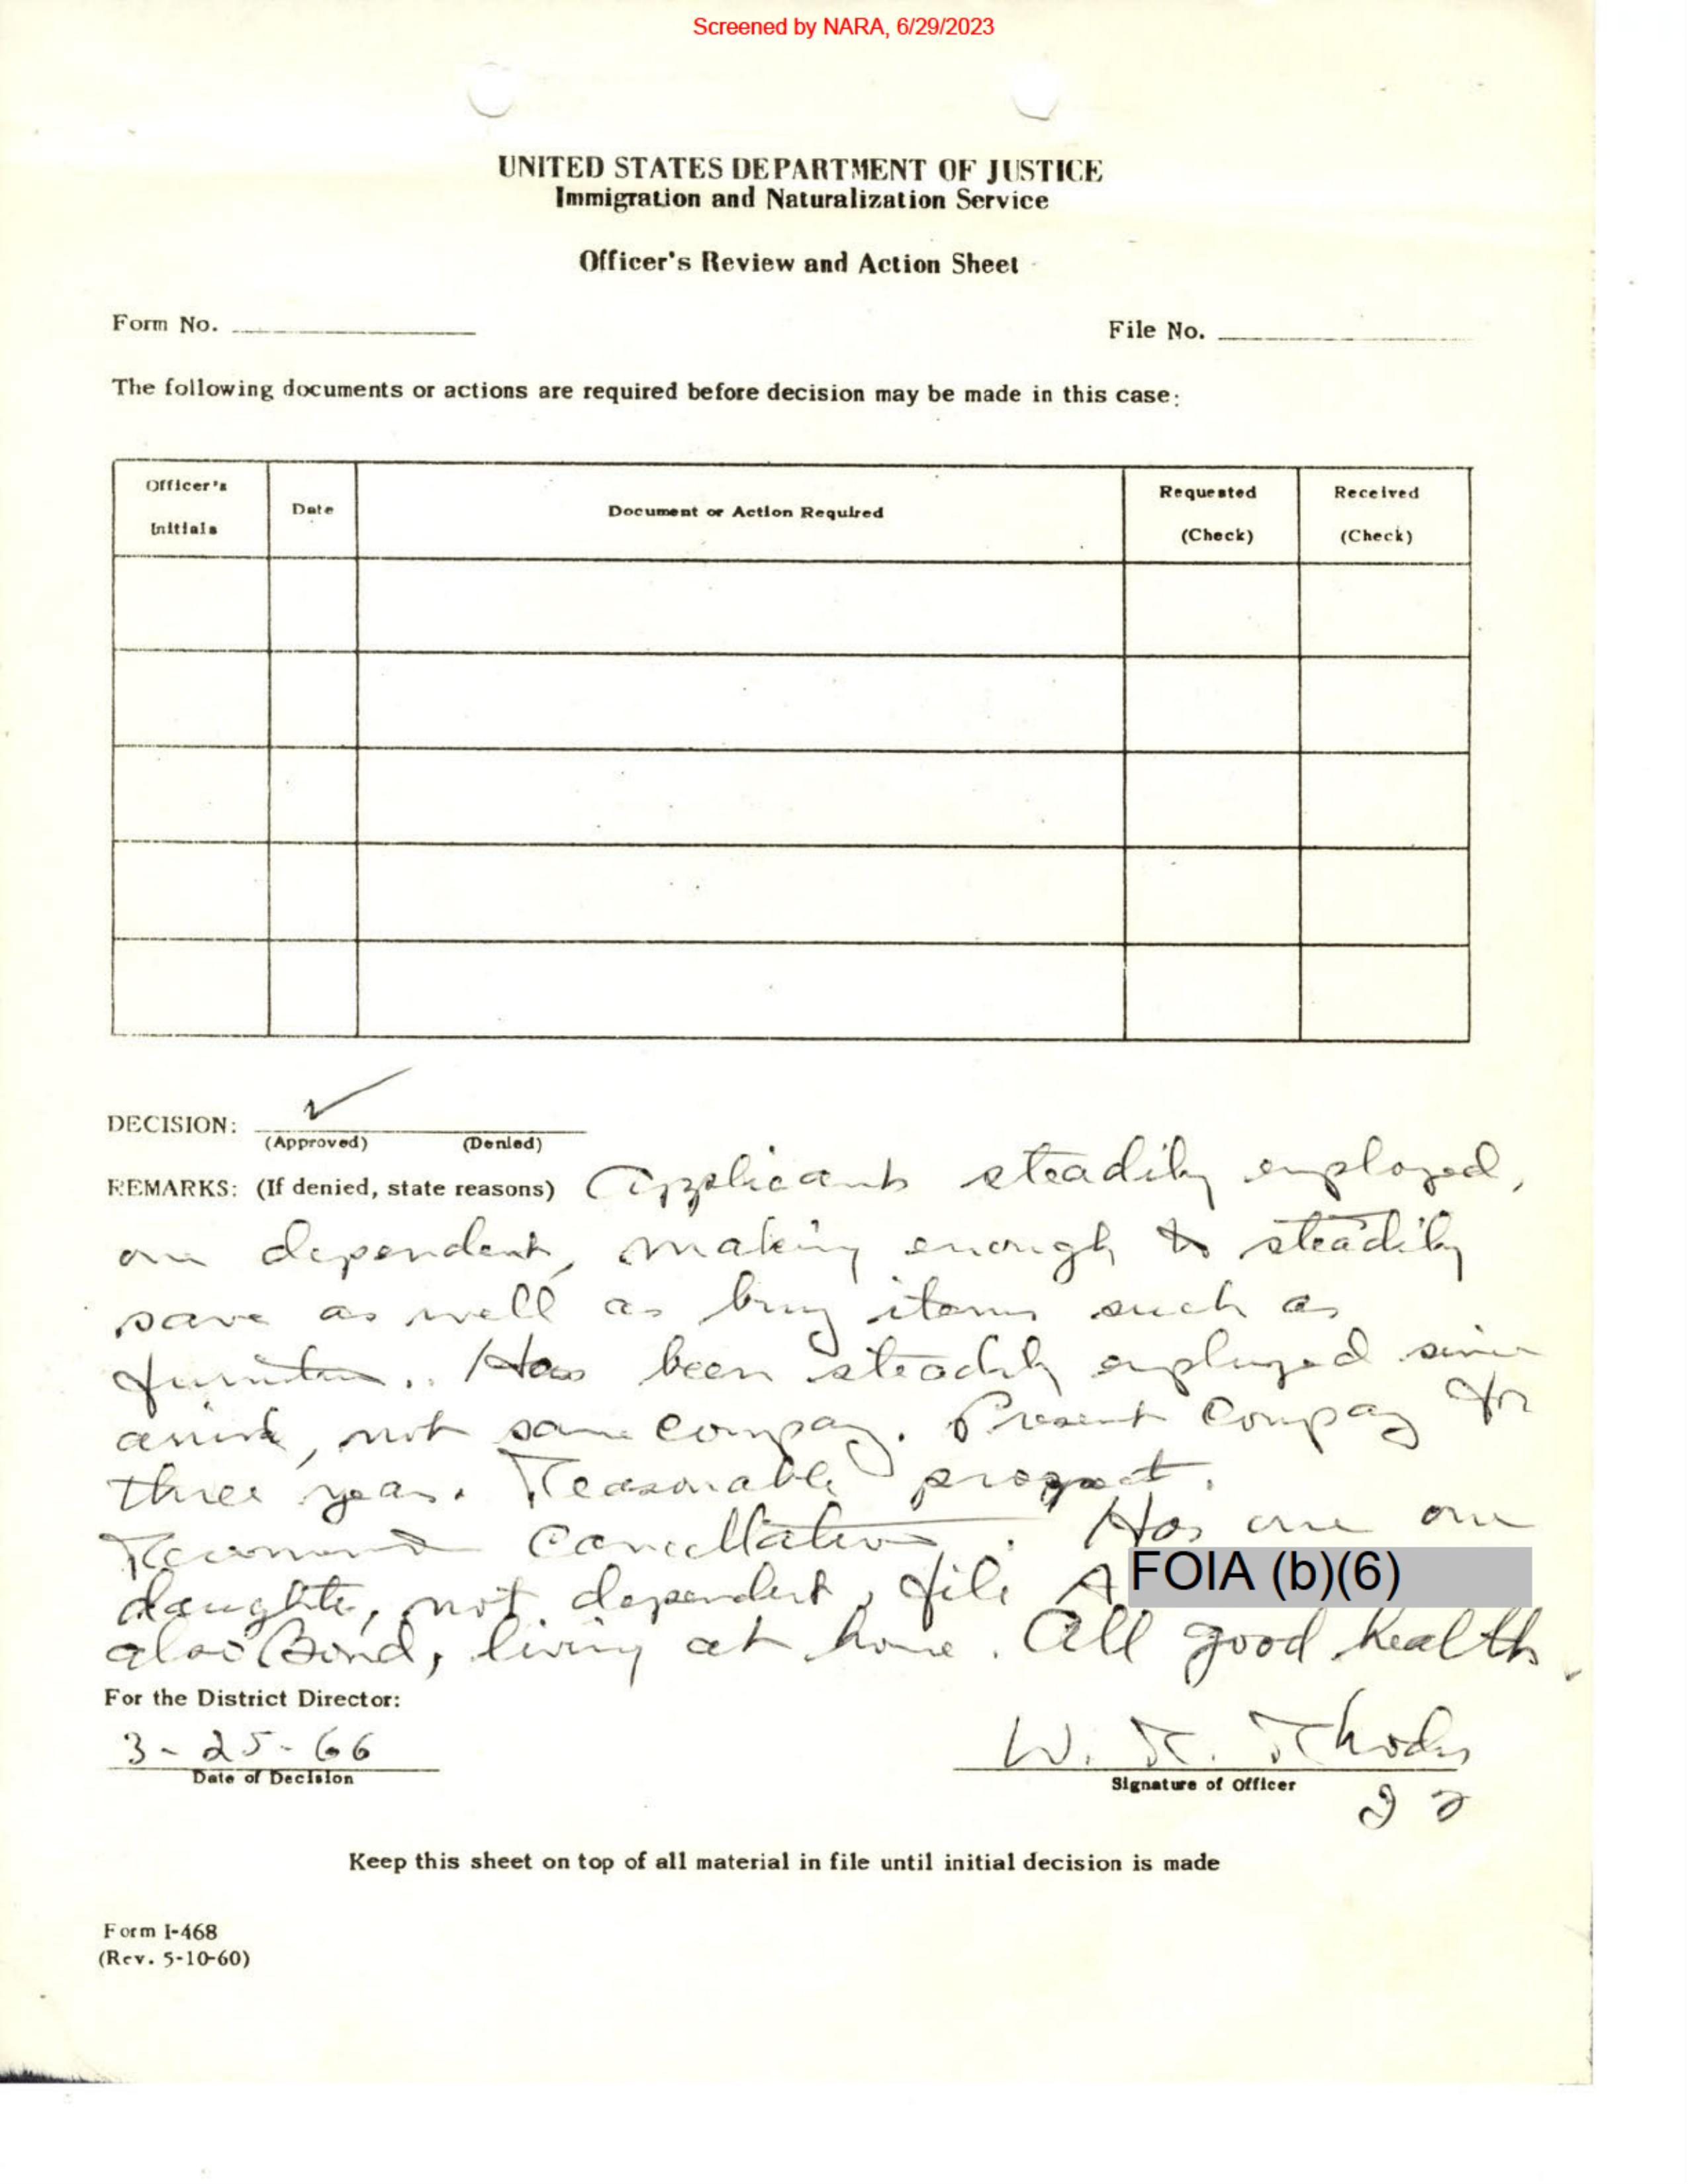 Screened by NARA, 6/29/2023
UNITED STATES DEPARTMENT OF JUSTICE
Immigration and Naturalization Service
Officer's Review and Action Sheet
Form No.
File No.
The following documents or actions are required before decision may be made in this case:
Officer's Initials
Date
Document or Action Required
Requested (Check)
Received (Check)
DECISION:
(Approved) (Denied)
REMARKS: (If denied, state reasons) Applicant steadily employed,
one dependent, making enough to steadily
save as well as buy items such as
furniture. Has been steadily employed since
arrival, not same company. Present company for
three years. Reasonable prospect.
Recommend cancellation. Has one
daughter, not dependent, file A FOIA (b)(6)
also Bond, living at home. All good health.
For the District Director:
3-25-66
Date of Decision
W. R. Rhodes
Signature of Officer
Keep this sheet on top of all material in file until initial decision is made
Form I-468
(Rev. 5-10-60)